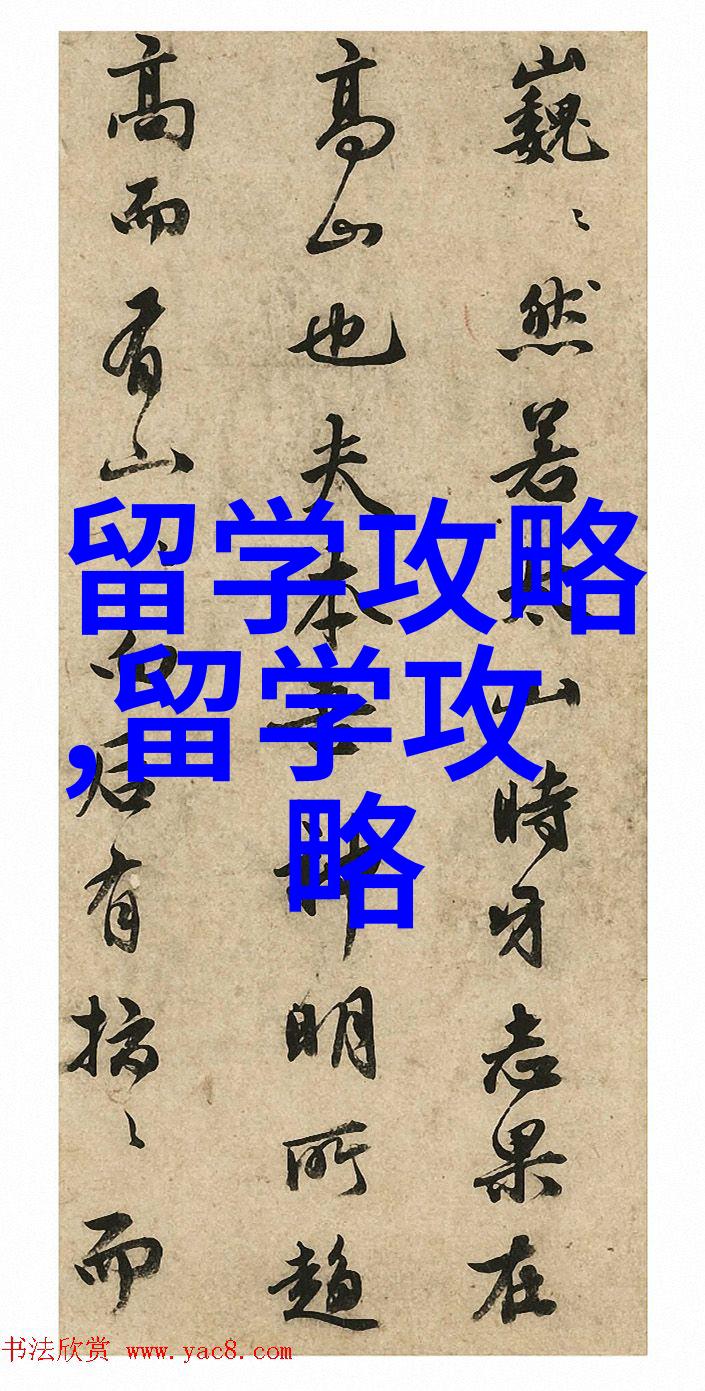 巍〻然若太山時牙志果在
高山也夫本
明所趨
高而有山
后有
〻而
留学攻略
,留学攻
略
书法欣赏 www.yac8.com